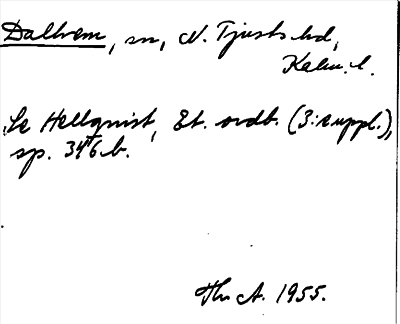 Dalhem, sn, N. Tjusts hd,
Kalm. l.
Se Hellquist, Et. ordb. (3: suppl.),
sp. 346 b.
Th A. 1955.